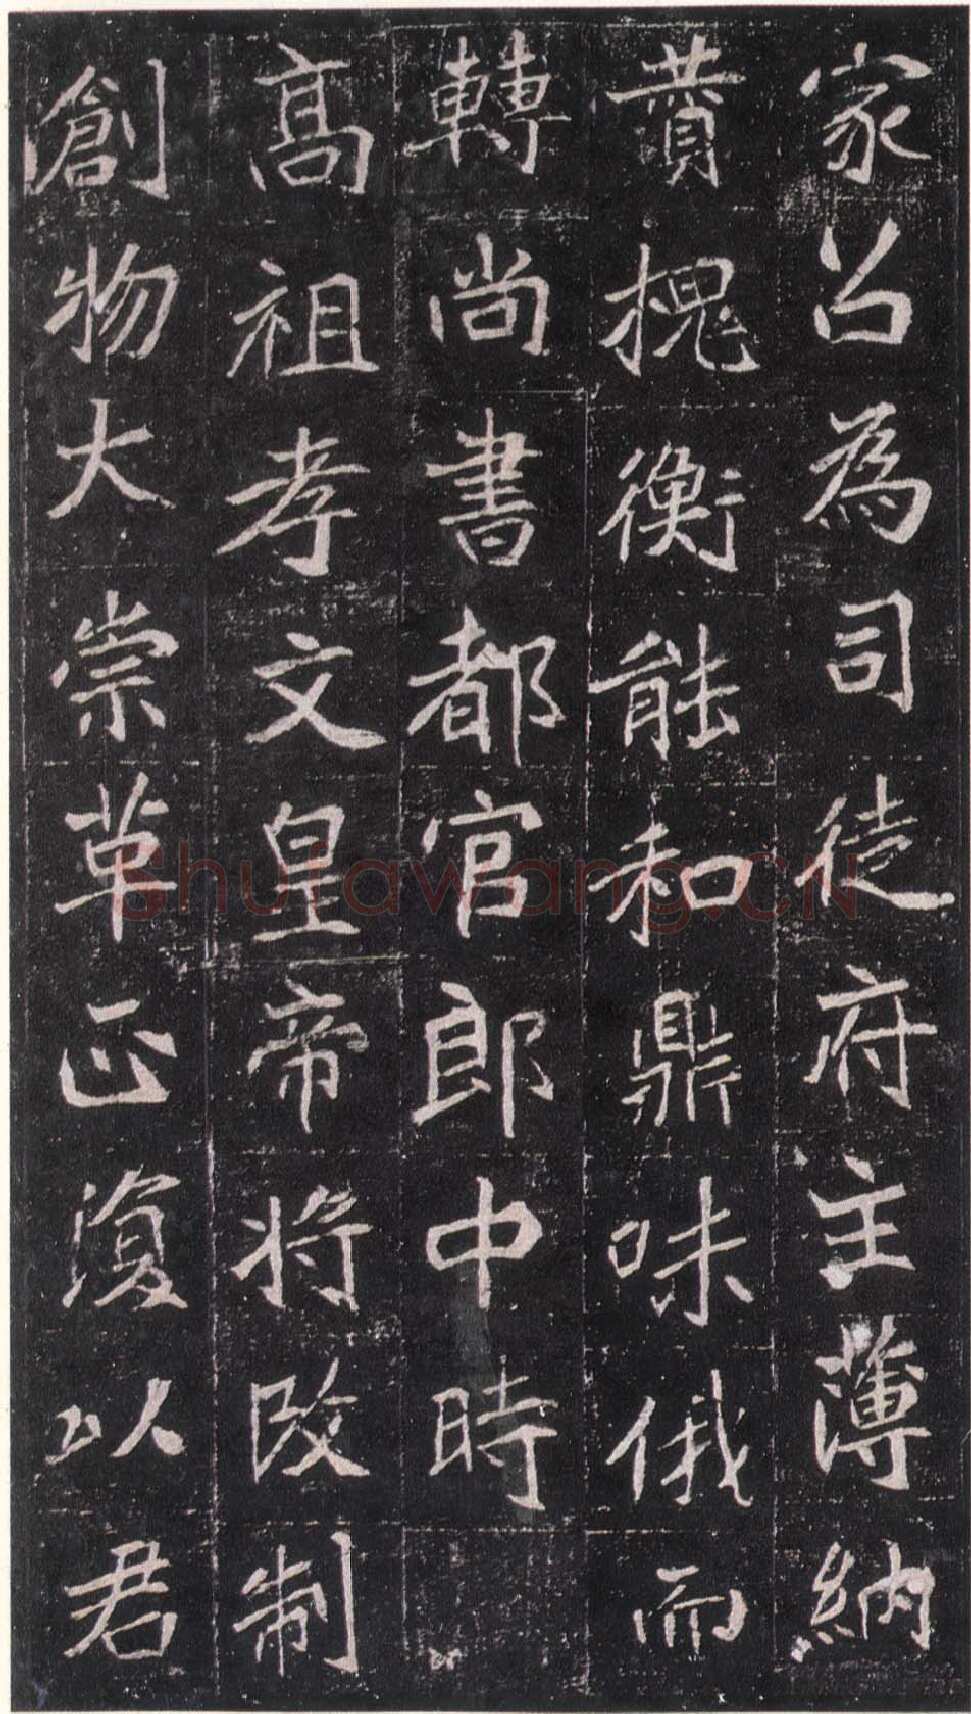 家召為司徒府主薄納
賛槐衡能和鼎味俄而
轉尚書都官郎中時
高祖孝文皇帝將改制
創物大崇革正復以君
Shufawang.CN